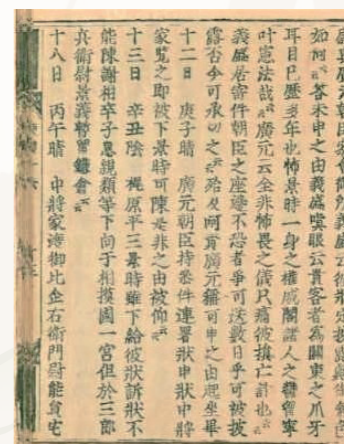 盛與廣元朝臣參會御所義盛云彼狀定披露歟御氣色
如何云云答未申之由義盛瞋眼云貴客者為關東之爪牙
耳目已歷多年也怖景時一身之權威閣諸人之欝胷寧
叶憲法哉云云廣元云全非怖畏之儀只痛彼損亡許也云云
義盛居寄件朝臣之座邊不恐者爭可送數日乎可被披
露否今可承切之云云殆及呵責廣元稱可申之由起座畢
十二日 庚子晴 廣元朝臣持參件連署狀申狀中將
家覽之即被下景時可陳是非之由被仰云云
十三日 辛丑陰 梶原平三景時雖下給彼狀訴狀不
能陳謝相卒子息親類等下向于相摸國一宮但於三郎
兵衛尉景義暫留鎌倉云云
十八日 丙午晴 中將家渡御比企右衛門尉能員宅